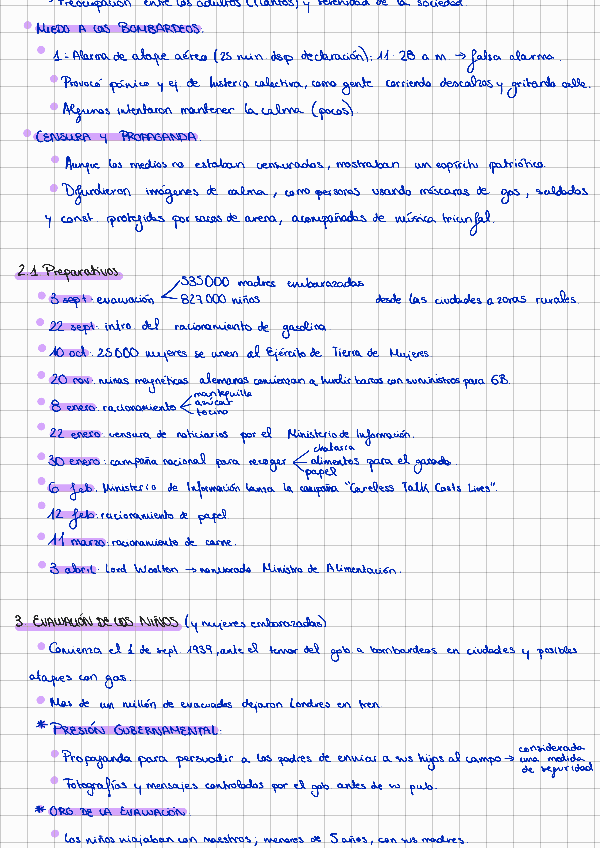 Preocupación entre los adultos (llantos) y serenidad de la sociedad.
MIEDO A LOS BOMBARDEOS.
1ª Alarma de ataque aéreo (25 min dsp declaración): 11:28 a.m → falsa alarma.
Provocó pánico y ej de histeria colectiva, como gente corriendo descalzos y gritando calle.
Algunos intentaron mantener la calma (pocos).
CENSURA Y PROPAGANDA.
Aunque los medios no estaban censurados, mostraban un espíritu patriótico.
Difundieron imágenes de calma, como personas usando máscaras de gas, soldados
y const protegidas por sacos de arena, acompañadas de música triunfal.
2.1 Preparativos
535000 madres embarazadas
3 sept: evacuación 827000 niños desde las ciudades a zonas rurales.
22 sept: intro. del racionamiento de gasolina
10 oct: 25000 mujeres se unen al Ejército de Tierra de Mujeres
20 nov: minas magnéticas alemanas comienzan a hundir barcos con suministros para GB.
mantequilla
8 enero: racionamiento azúcar
tocino
22 enero censura de noticiarios por el Ministerio de Información.
chatarra
30 enero: campaña nacional para recoger alimentos para el ganado.
papel
6 feb. Ministerio de Información lanza la campaña "Careless Talk Costs Lives".
12 feb: racionamiento de papel
11 marzo: racionamiento de carne.
3 abril: Lord Woolton → nombrado Ministro de Alimentación.
3 EVACUACIÓN DE LOS NIÑOS (y mujeres embarazadas)
Comienza el 1 de sept 1939, ante el temor del gob a bombardeos en ciudades y posibles
ataques con gas.
Mas de un millón de evacuados dejaron Londres en tren
* PRESIÓN GUBERNAMENTAL.
Propaganda para persuadir a los padres de enviar a sus hijos al campo → considerada
una medida
de seguridad
Fotografías y mensajes controlados por el gob antes de su pub.
* ORG DE LA EVACUACIÓN
Los niños viajaban con maestros; menores de 5 años, con sus madres.